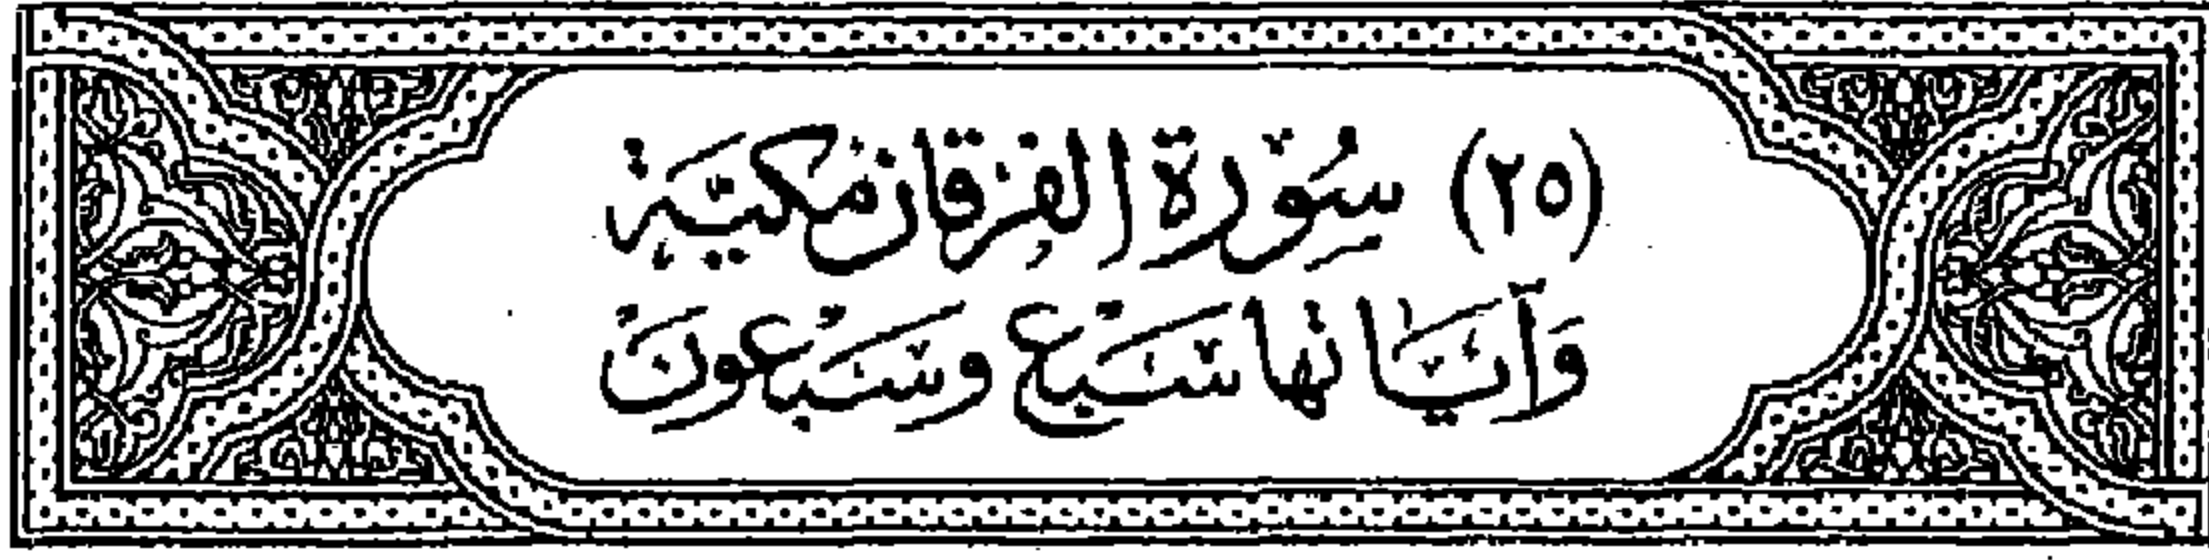 (٢٥) سُورة الفرقان مكيّة
وَآيَاتها سَبْع وسَبْعونَ